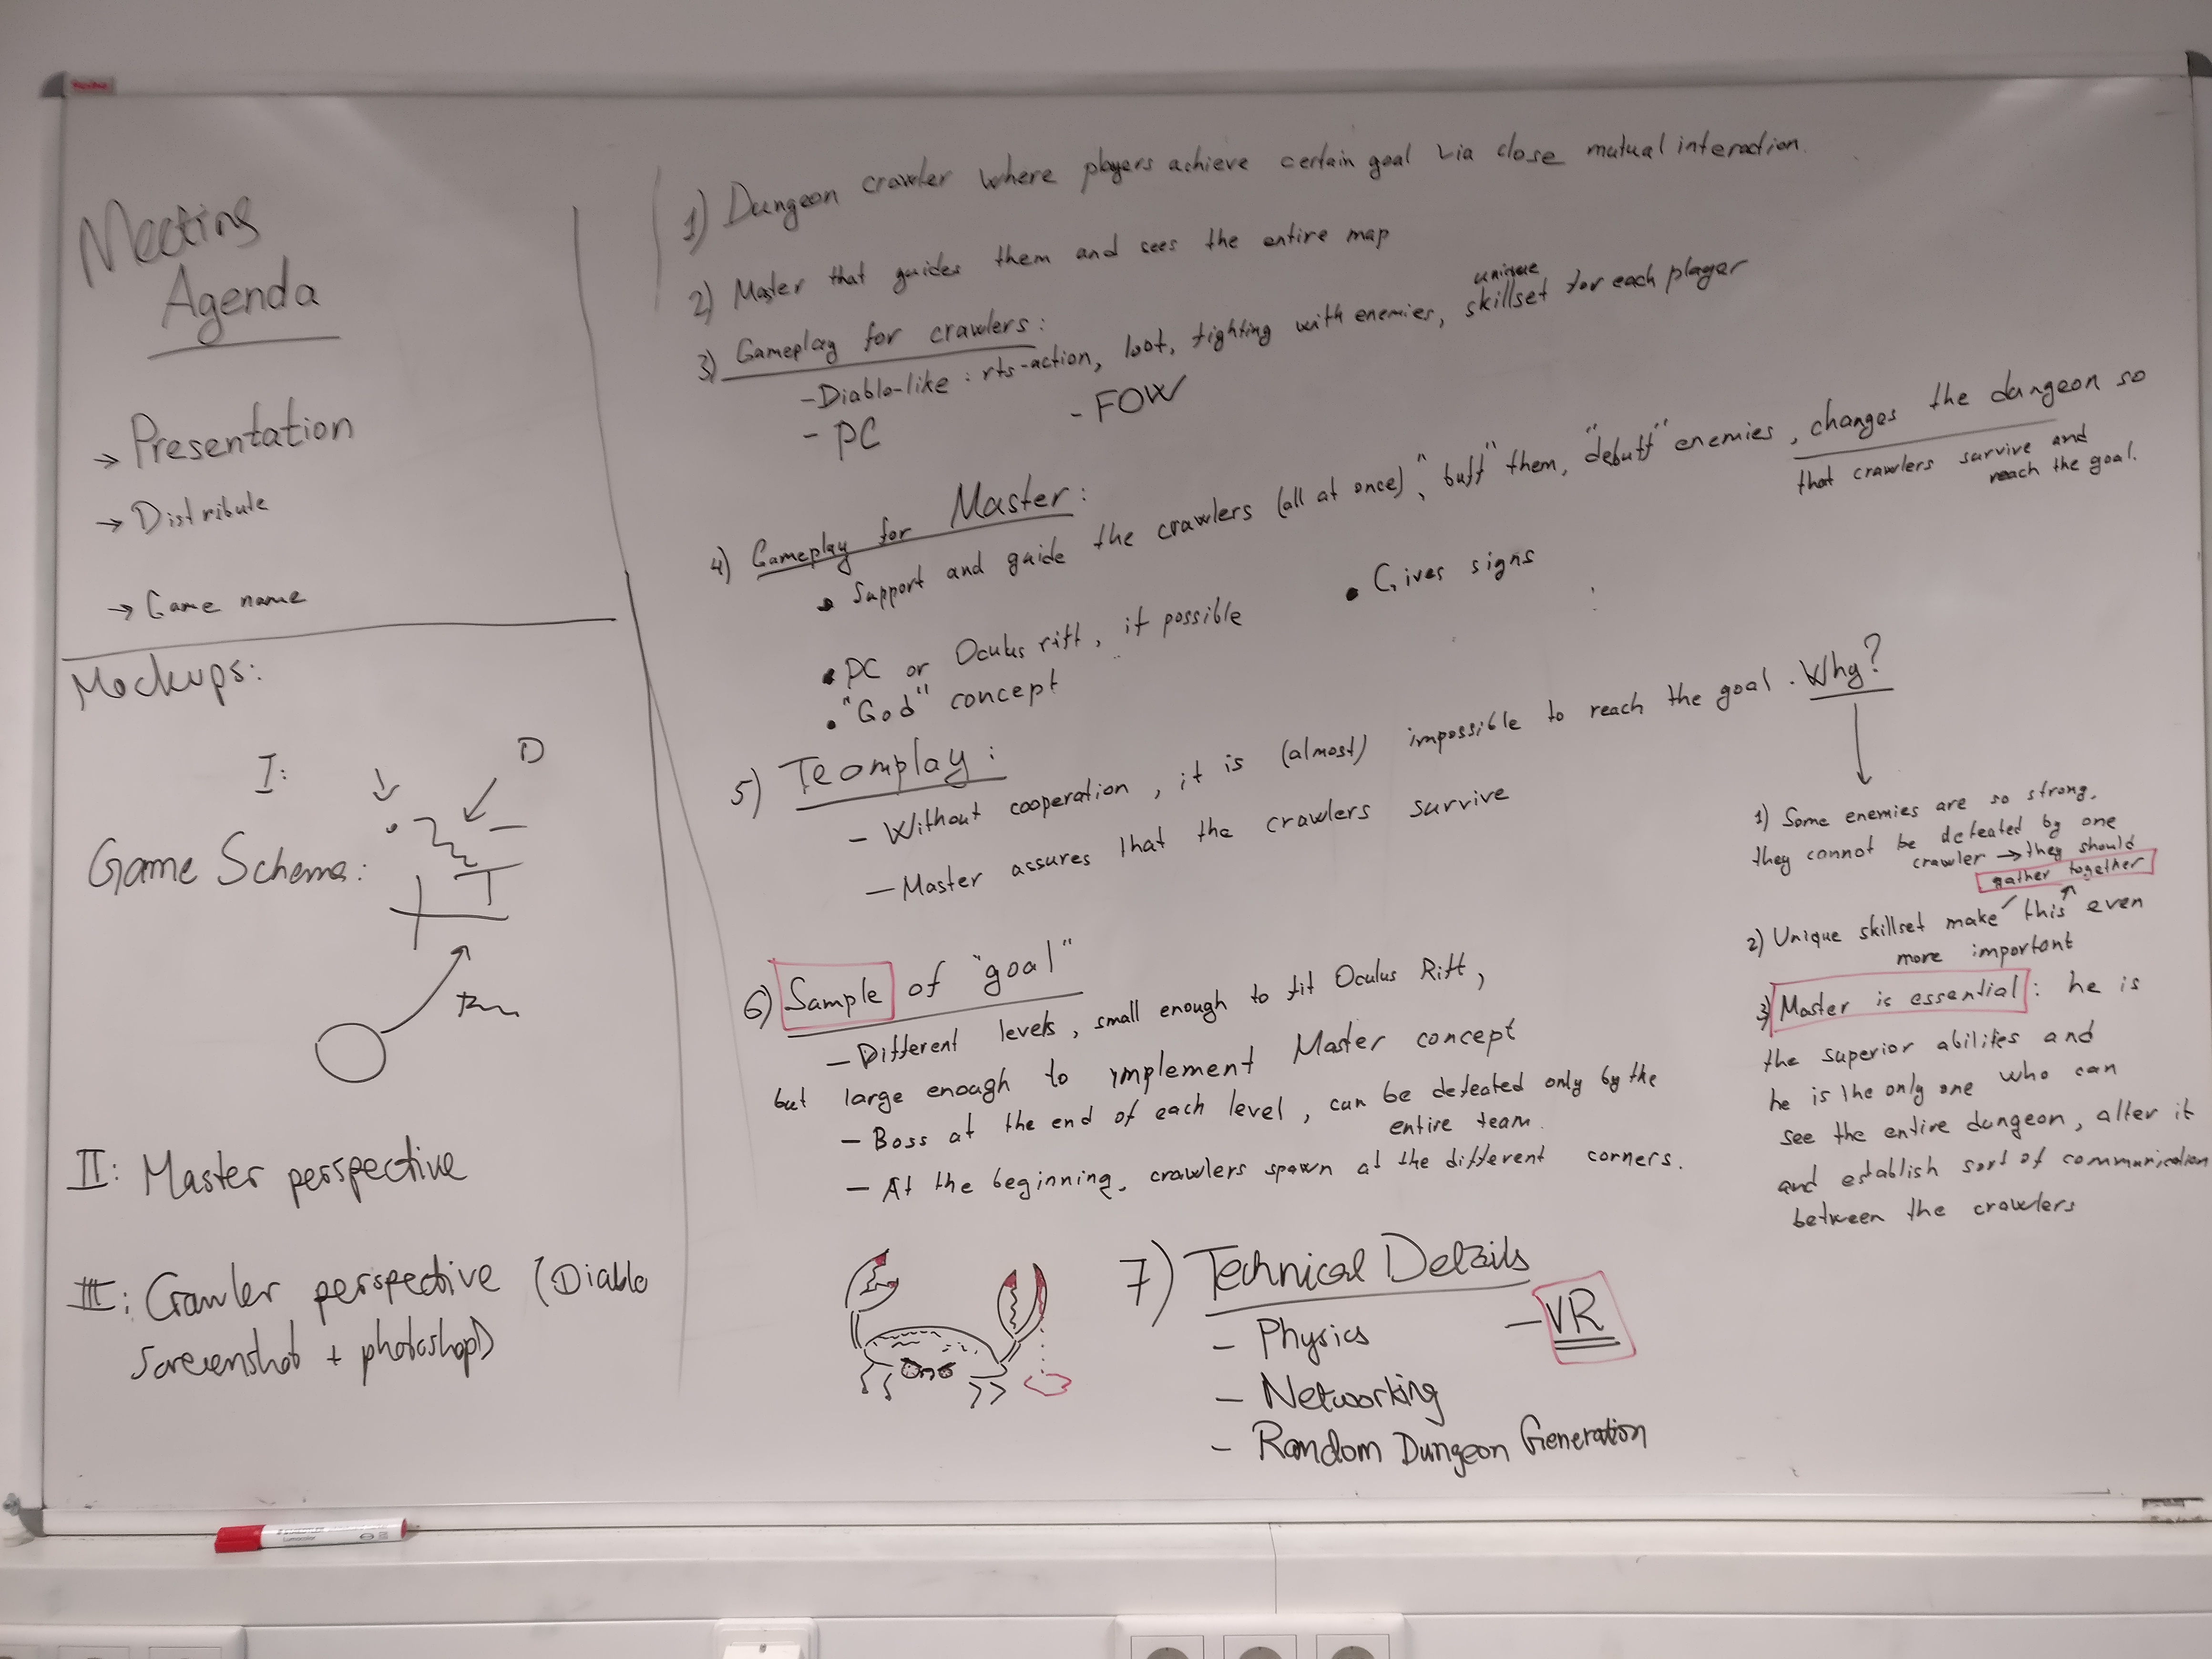 Meeting
Agenda
→ Presentation
→ Distribute
→ Game name
Mockups:
I:
D
Game Schema:
II: Master perspective
III: Crawler perspective (Diablo
Screenshot + photoshop)
1) Dungeon crawler where players achieve certain goal via close mutual interaction.
2) Master that guides them and sees the entire map
3) Gameplay for crawlers:
unique
- Diablo-like : rts-action, loot, fighting with enemies, skillset for each player
- PC
- FOW
4) Gameplay for Master:
• Support and guide the crawlers (all at once), "buff" them, "debuff" enemies, changes the dungeon so
that crawlers survive and
reach the goal.
• Gives signs
• PC or Oculus rift, if possible
• "God" concept
5) Teamplay:
- Without cooperation, it is (almost) impossible to reach the goal. Why?
- Master assures that the crawlers survive
1) Some enemies are so strong,
they cannot be defeated by one
crawler → they should
gather together
2) Unique skillset make this even
more important
3) Master is essential: he is
the superior abilities and
he is the only one who can
see the entire dungeon, alter it
and establish sort of communication
between the crawlers
6) Sample of "goal"
- Different levels, small enough to fit Oculus Rift,
but large enough to implement Master concept
- Boss at the end of each level, can be defeated only by the
entire team.
- At the beginning, crawlers spawn at the different corners.
7) Technical Details
- Physics
- VR
- Networking
- Random Dungeon Generation